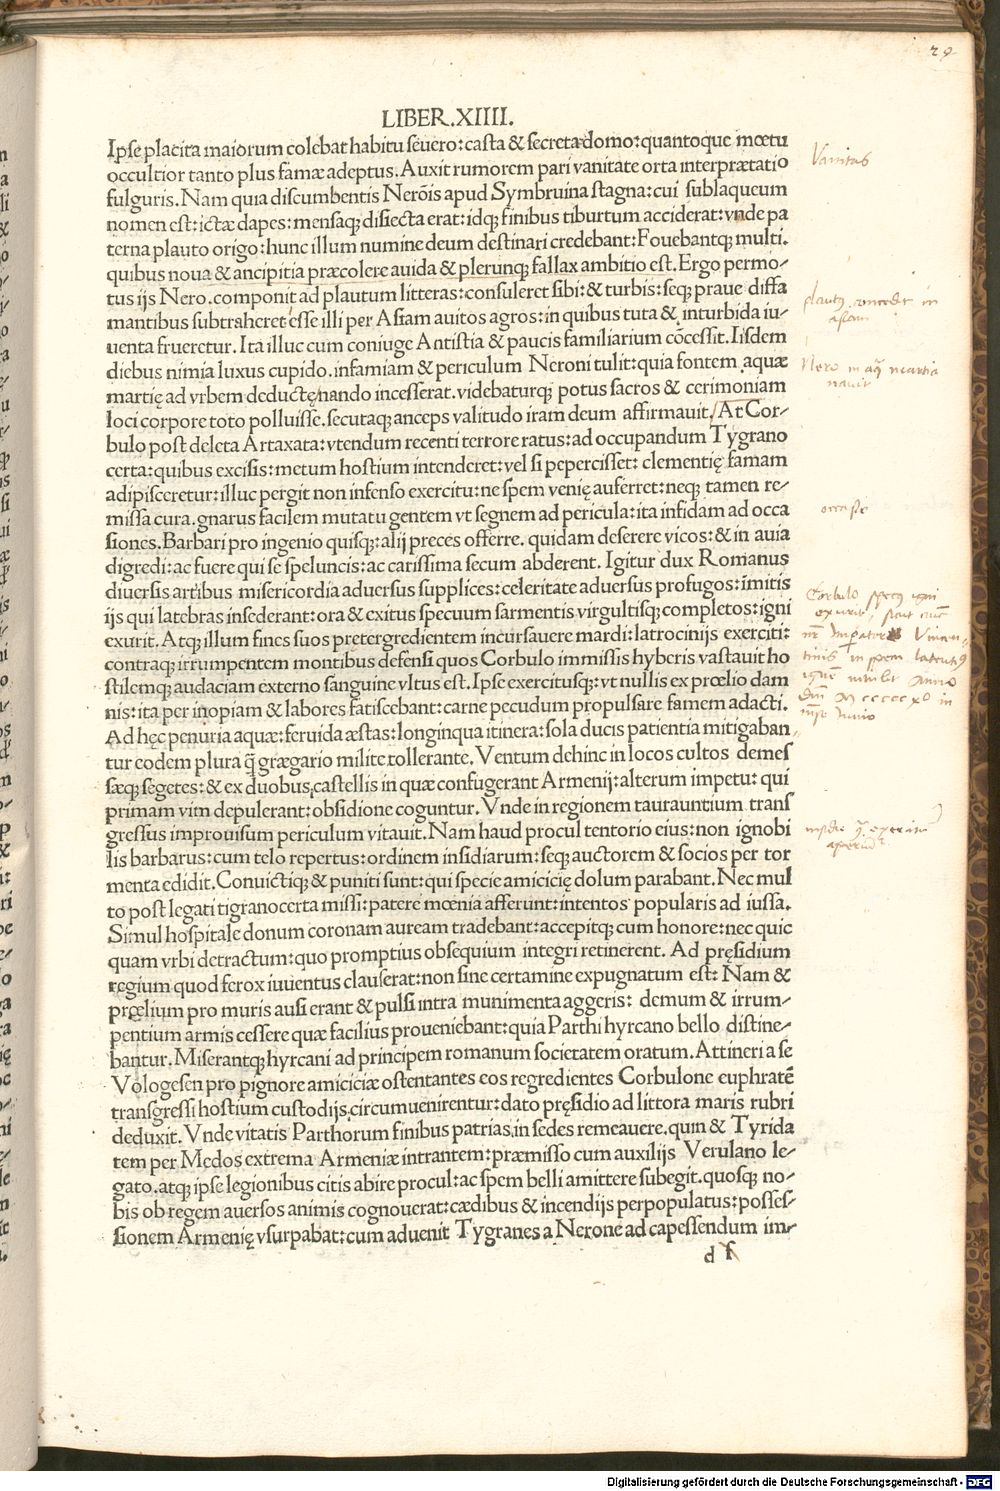 29
LIBER.XIIII.
Ipse placita maiorum colebat habitu seuero: casta & secreta domo: quantoque mœtu
occultior tanto plus famæ adeptus. Auxit rumorem pari vanitate orta interprætatio
fulguris. Nam quia discumbentis Nerõis apud Symbruina stagna: cui sublaqueum
nomen est: ictæ dapes: mensaqꝫ disiecta erat: idqꝫ finibus tiburtum acciderat: vnde pa
terna plauto origo: hunc illum numine deum destinari credebant: Fouebantqꝫ multi.
quibus noua & ancipitia præcolere auida & plerunqꝫ fallax ambitio est. Ergo permo⸗
tus ijs Nero. componit ad plautum litteras: consuleret sibi: & turbis: seqꝫ praue diffa
mantibus subtraheret esse illi per Asiam auitos agros: in quibus tuta & inturbida iu⸗
uenta frueretur. Ita illuc cum coniuge Antistia & paucis familiarium cõcessit. Iisdem
diebus nimia luxus cupido. infamiam & periculum Neroni tulit: quia fontem aquæ
martię ad vrbem deductę nando incesserat. videbaturqꝫ potus sacros & cerimoniam
loci corpore toto polluisse. secutaqꝫ anceps valitudo iram deum affirmauit. At Cor⸗
bulo post deleta Artaxata: vtendum recenti terrore ratus: ad occupandum Tygrano
certa: quibus excisis: metum hostium intenderet: vel si pepercisset: clementię famam
adipisceretur: illuc pergit non infenso exercitu: ne spem venię auferret: neqꝫ tamen re⸗
missa cura. gnarus facilem mutatu gentem vt segnem ad pericula: ita infidam ad occa
siones. Barbari pro ingenio quisqꝫ: alij preces offerre. quidam deserere vicos: & in auia
digredi: ac fuere qui se speluncis: ac carissima secum abderent. Igitur dux Romanus
diuersis artibus misericordia aduersus supplices: celeritate aduersus profugos: ĩmitis
ijs qui latebras insederant: ora & exitus specuum sarmentis virgultisqꝫ completos: igni
exurit. Atqꝫ illum fines suos pretergredientem incursauere mardi: latrocinijs exerciti:
contraqꝫ irrumpentem montibus defensi quos Corbulo immissis hyberis vastauit ho
stilemqꝫ audaciam externo sanguine vltus est. Ipse exercitusqꝫ: vt nullis ex prœlio dam
nis: ita per inopiam & labores fatiscebant: carne pecudum propulsare famem adacti.
Ad hęc penuria aquæ: feruida æstas: longinqua itinera: sola ducis patientia mitigaban⸗
tur eodem plura q̃ grægario milite tollerante. Ventum dehinc in locos cultos demes
sæqꝫ segetes: & ex duobus castellis in quæ confugerant Armenij: alterum impetu: qui
primam vim depulerant: obsidione coguntur. Vnde in regionem taurauntium trans
gressus improuisum periculum vitauit. Nam haud procul tentorio eius: non ignobi
lis barbarus: cum telo repertus: ordinem insidiarum: seqꝫ auctorem & socios per tor
menta edidit. Conuictiqꝫ & puniti sunt: qui specie amicicię dolum parabant. Nec mul
to post legati tigranocerta missi: patere mœnia afferunt: intentos popularis ad iussa.
Simul hospitale donum coronam auream tradebant: accepitqꝫ cum honore: nec quic
quam vrbi detractum: quo promptius obsequium integri retinerent. Ad pręsidium
regium quod ferox iuuentus clauserat: non sine certamine expugnatum est: Nam &
prœlium pro muris ausi erant & pulsi intra munimenta aggeris: demum & irrum⸗
pentium armis cessere quæ facilius proueniebant: quia Parthi hyrcano bello distine⸗
bantur. Miserantqꝫ hyrcani ad principem romanum societatem oratum. Attineri a se
Vologesen pro pignore amiciciæ ostentantes eos regredientes Corbulone euphratẽ
transgressi hostium custodijs circumuenirentur: dato pręsidio ad littora maris rubri
deduxit. Vnde vitatis Parthorum finibus patrias in sedes remeauere. quin & Tyrida
tem per Medos extrema Armeniæ intrantem: præmisso cum auxilijs Verulano le⸗
gato. atqꝫ ipse legionibus citis abire procul: ac spem belli amittere subegit. quosqꝫ no⸗
bis ob regem auersos animis cognouerat: cædibus & incendijs perpopulatus: posses⸗
sionem Armenię vsurpabat: cum aduenit Tygranes a Nerone ad capessendum im⸗
d
Vanitas
plautꝰ concedit in
asiam
Nero in aq̃ martia
nauit
occasio
Corbulo specꝰ igni
exurit, sicut
Vincen⸗
tinis in latentes
ignẽ Anno
in
Junio
Digitalisierung gefördert durch die Deutsche Forschungsgemeinschaft - DFG